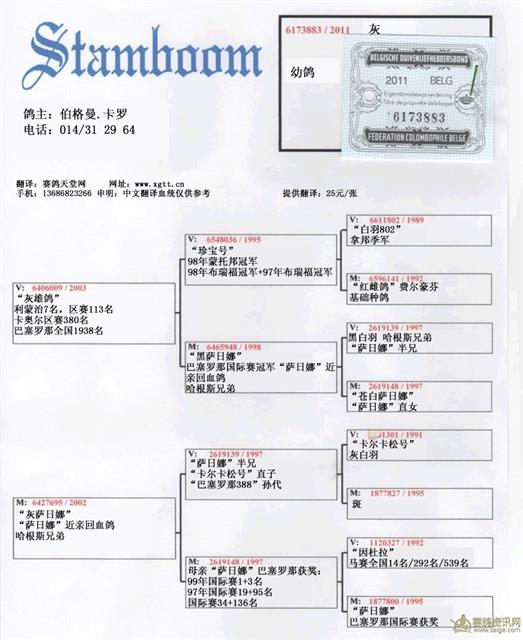 Stamboom
6173883 / 2011 灰
幼鸽
BELGISCHE DUIVENLIEFHEBBERSBOND
2011 BELG
Eigendomsbewijs verdering
Titre de propriété de la bague
6173883
FEDERATION COLOMBOPHILE BELGE
鸽主：伯格曼.卡罗
电话：014/31 29 64
翻译：赛鸽天堂网 网址：www.xgtt.cn
手机：13686823266 申明：中文翻译血统仅供参考 提供翻译：25元/张
V: 6406009 / 2003
“灰雄鸽”
利蒙治7名，区赛113名
卡奥尔区赛380名
巴塞罗那全国1938名
V: 6548036 / 1995
“珍宝号”
98年蒙托邦冠军
98年布瑞福冠军+97年布瑞福冠军
V: 6611802 / 1989
“白羽802”
拿邦季军
M: 6596141 / 1992
“红雌鸽”费尔豪芬
基础种鸽
M: 6465948 / 1998
“黑萨日娜”
巴塞罗那国际赛冠军“萨日娜”近
亲回血鸽
哈根斯兄弟
V: 2619139 / 1997
黑白羽 哈根斯兄弟
“萨日娜”半兄
M: 2619148 / 1997
“苍白萨日娜”
“萨日娜”直女
M: 6427695 / 2002
“灰萨日娜”
“萨日娜”近亲回血鸽
哈根斯兄弟
V: 2619139 / 1997
“萨日娜”半兄
“卡尔卡松号”直子
“巴塞罗那388”孙代
V: 1301 / 1991
“卡尔卡松号”
灰白羽
M: 1877827 / 1995
斑
M: 2619148 / 1997
母亲“萨日娜”巴塞罗那获奖：
99年国际赛1+3名
97年国际赛19+95名
国际赛34+136名
V: 1120327 / 1992
“因杜拉”
马赛全国14名/292名/539名
M: 1877800 / 1995
“萨日娜”
巴塞罗那国际赛获奖
赛鸽资讯网
www.saige.com